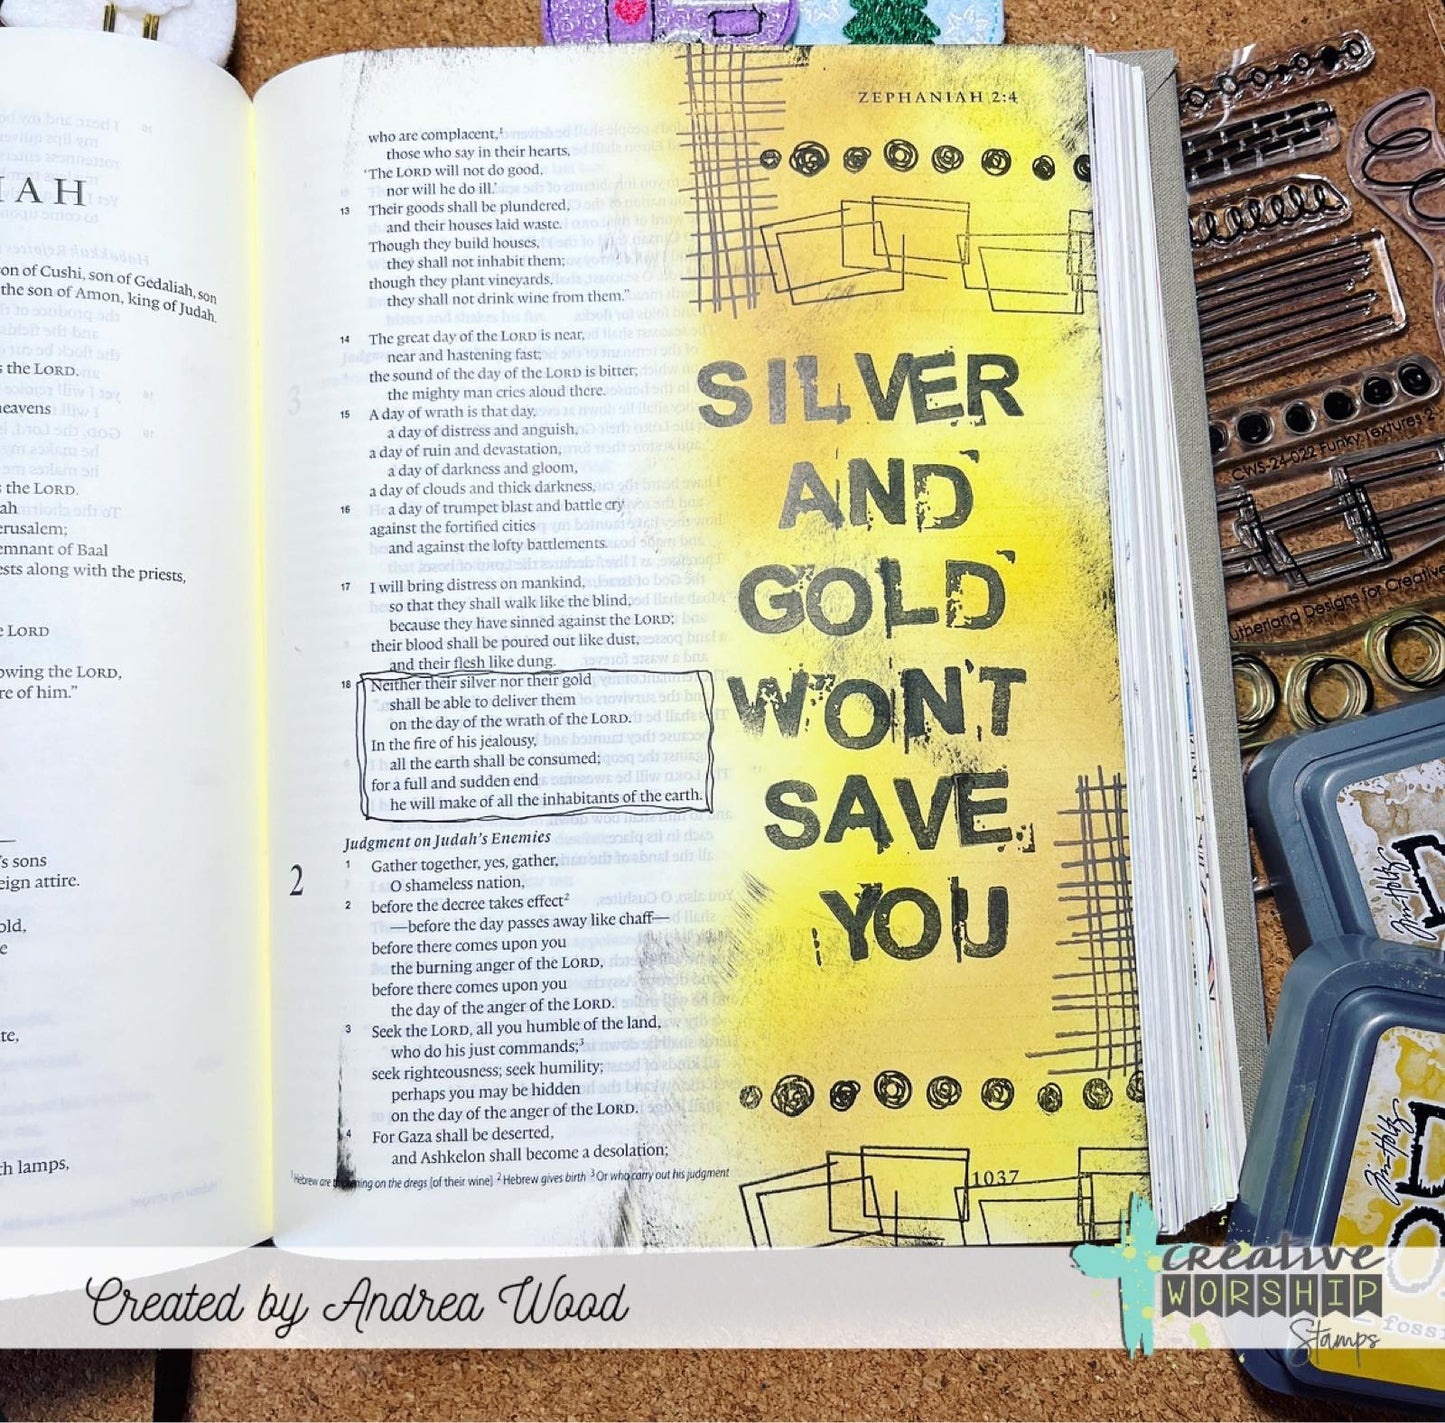 IAH
on of Cushi, son of Gedaliah, son
the son of Amon, king of Judah.
the LORD.
eavens
the LORD.
ah
erusalem;
emnant of Baal
ests along with the priests,
LORD
owing the LORD,
re of him.”
's sons
eign attire.
old,
te,
h lamps,
ZEPHANIAH 2:4
who are complacent,¹
those who say in their hearts,
‘The LORD will not do good,
nor will he do ill.’
13 Their goods shall be plundered,
and their houses laid waste.
Though they build houses,
they shall not inhabit them;
though they plant vineyards,
they shall not drink wine from them.”
14 The great day of the LORD is near,
near and hastening fast;
the sound of the day of the LORD is bitter;
the mighty man cries aloud there.
15 A day of wrath is that day,
a day of distress and anguish,
a day of ruin and devastation,
a day of darkness and gloom,
a day of clouds and thick darkness,
16 a day of trumpet blast and battle cry
against the fortified cities
and against the lofty battlements.
17 I will bring distress on mankind,
so that they shall walk like the blind,
because they have sinned against the LORD;
their blood shall be poured out like dust,
and their flesh like dung.
18 Neither their silver nor their gold
shall be able to deliver them
on the day of the wrath of the LORD.
In the fire of his jealousy,
all the earth shall be consumed;
for a full and sudden end
he will make of all the inhabitants of the earth.
Judgment on Judah's Enemies
2 1 Gather together, yes, gather,
O shameless nation,
2 before the decree takes effect²
—before the day passes away like chaff—
before there comes upon you
the burning anger of the LORD,
before there comes upon you
the day of the anger of the LORD.
3 Seek the LORD, all you humble of the land,
who do his just commands;³
seek righteousness; seek humility;
perhaps you may be hidden
on the day of the anger of the LORD.
4 For Gaza shall be deserted,
and Ashkelon shall become a desolation;
¹ Hebrew are on the dregs [of their wine] ² Hebrew gives birth ³ Or who carry out his judgment
1037
SILVER
AND
GOLD
WON'T
SAVE
YOU
CWS-24-022 Funky Textures 2
utherland Designs for Creative
Tim Holtz
Tim Holtz
fossi
Created by Andrea Wood
creative
WORSHIP
Stamps